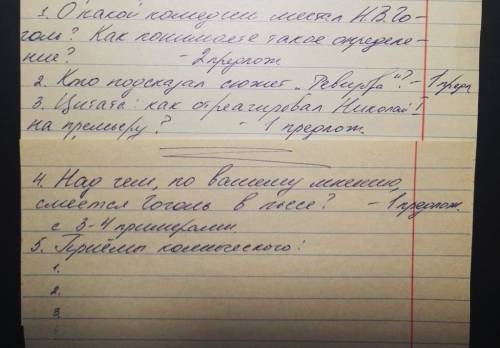 1. О какой комедии мечтал Н.В.Го-
голь? Как понимаете такое определе-
ние? - 2 предлож
2. Кто подсказал сюжет „Ревизора"? - 1 предл
3. Цитата: как отреагировал Николай I
на премьеру? - 1 предлож.
4. Над чем, по вашему мнению,
смеётся Гоголь в пьесе? - 1 предлож.
с 3-4 примерами.
5. Приёмы комического:
1.
2.
3